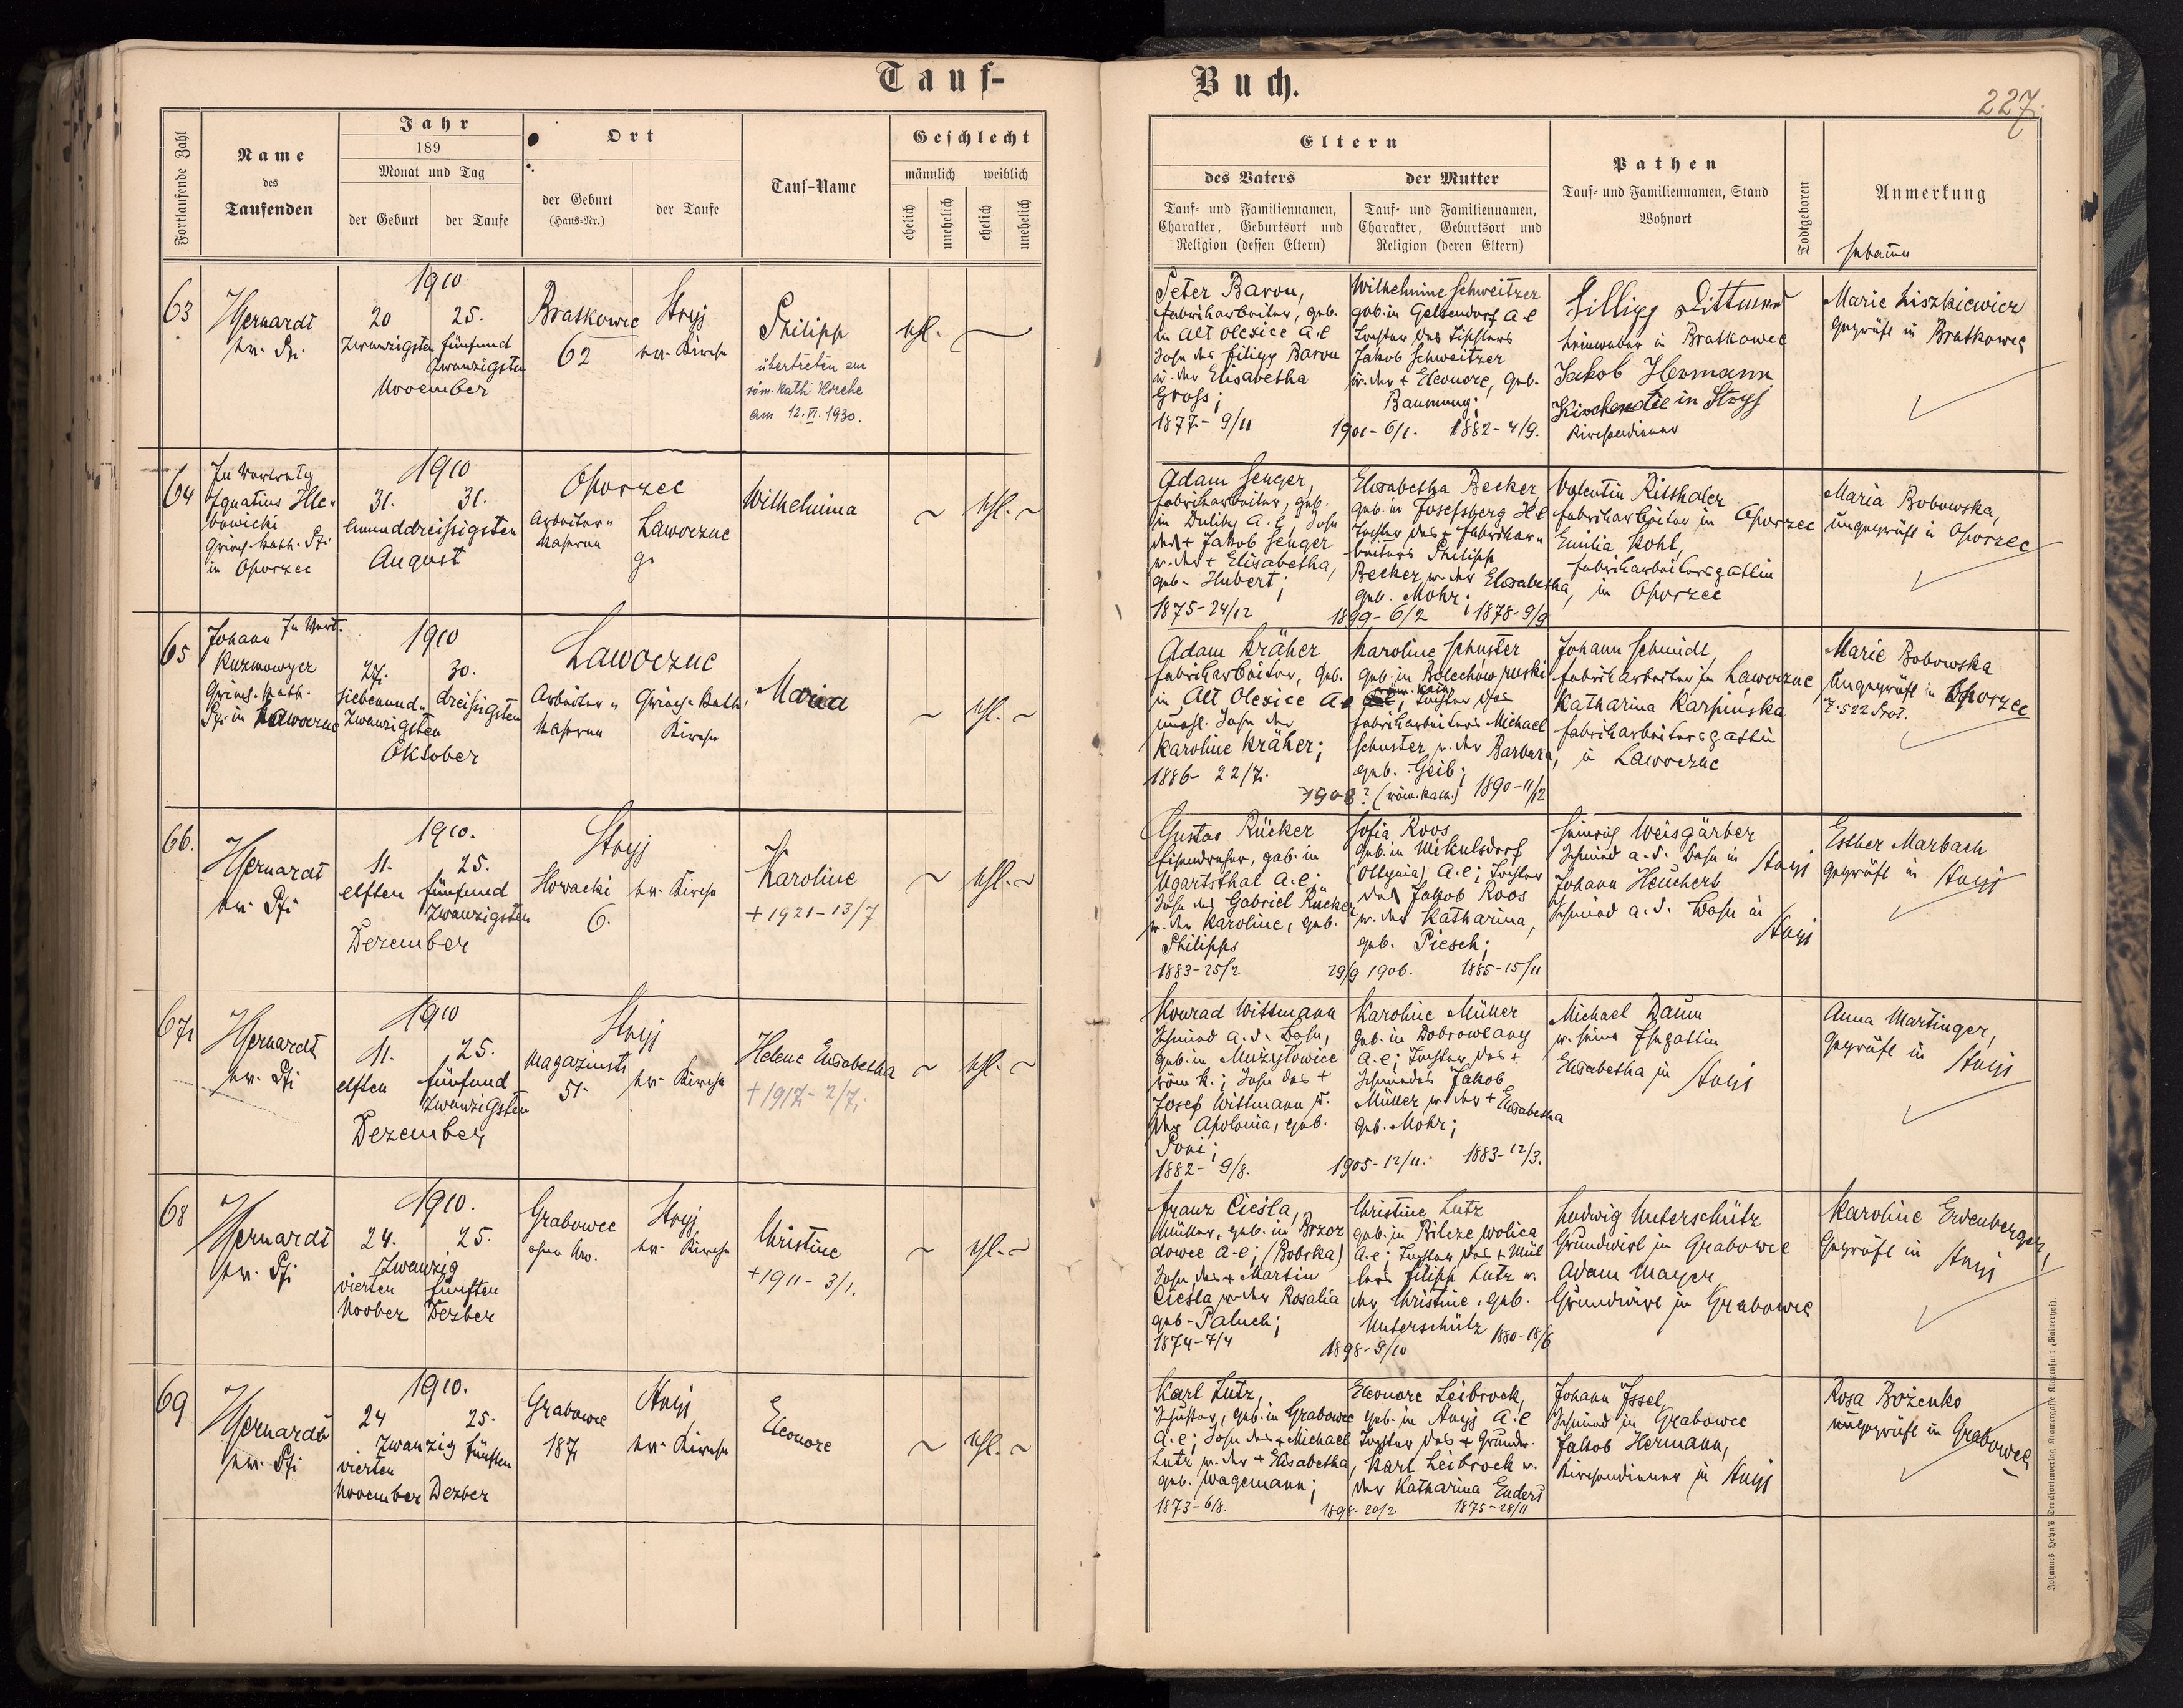 Tauf-
Fortlaufende Zahl
Name
des
Taufenden
Jahr
189
Monat und Tag
der Geburt
der Taufe
Ort
der Geburt
(Haus-Nr.)
der Taufe
Tauf-Name
Geschlecht
männlich
weiblich
ehelich
unehelich
ehelich
unehelich
63
Hernardt
ev. Pfr.
1910
20
25.
Zwanzigsten
fünfund
Zwanzigsten
November
Bratkowce
62
Stryj
ev. Kirche
Philipp
übertreten zur
röm. kath Kirche
am 12.VI.1930.
ehl.
64
In Vertretg
Ignatius Hle-
bowicki
Griech. kath. Pfr
in Oporzec
1910
31.
31.
Einunddreißigsten
August
Oporzec
Arbeiter-
kasernen
Lawoczne
Wilhelmina
ehl.
65
Johann In Vert.
Kurmowyer
Griech. kath.
Pfr in Lawoczne
1910
27.
30.
Siebenund-
Zwanzigsten
dreißigsten
Oktober
Lawoczne
Arbeiter-
kasernen
Griech. kath.
Kirche
Maria
ehl.
66.
Hernardt
ev. Pfr
1910.
11.
25.
elften
fünfund
Zwanzigsten
Dezember
Stryj
Slowacki
6.
ev. Kirche
Karoline
+ 1921-13/7
ehl.
67
Hernardt
ev. Pfr
1910
11.
25.
elften
fünfund
Zwanzigsten
Dezember
Stryj
Magazinstr
51
ev. Kirche
Helene Elisabetha
+ 1917- 2/7.
ehl.
68
Hernardt
ev. Pfr
1910.
24.
25.
Zwanzig
vierten
fünften
Novber
Dezber
Grabowce
ohne No.
Stryj
ev. Kirche
Christine
+ 1911- 3/1.
ehl.
69
Hernardt
ev. Pfr
1910.
24
25.
Zwanzig
vierten
fünften
November
Dezber
Grabowce
187
Stryj
ev. Kirche
Eleonore
ehl.
Buch.
227.
Eltern
des Vaters
der Mutter
Tauf- und Familiennamen,
Charakter, Geburtsort und
Religion (dessen Eltern)
Tauf- und Familiennamen,
Charakter, Geburtsort und
Religion (deren Eltern)
Pathen
Tauf- und Familiennamen, Stand
Wohnort
Todtgeboren
Anmerkung
Hebamme
Peter Baron,
Fabrikarbeiter, geb.
in Alt Olexice A.C
Sohn des Filipp Baron
u. der Elisabetha
Gross;
1877- 9/11
Wilhelmine Schweitzer
geb. in Gelsendorf A C
Tochter des Tischlers
Jakob Schweitzer
u. der + Eleonore, geb.
Baumung;
1901-6/1. 1882-4/9.
Fillipp Dittmer
Leinweber in Bratkowce
Jakob Hermann
Kirchendie in Stryj
Kirchendiener
Marie Liszkiewicz
Geprüft in Bratkowce
Adam Senger,
Fabrikarbeiter, geb.
in Duliby A.C, Sohn
des + Jakob Senger
u. der + Elisabetha,
geb. Hubert;
1875-24/12
Elisabetha Becker
geb. in Josefsberg H C
Tochter des + Fabrikar-
beiters Philipp
Becker u. der Elisabetha,
geb. Mohr;
1899-6/2 1878-9/9
Valentin Ritthaler
Fabrikarbeiter in Oporzec
Emilia Kohl,
Fabrikarbeitersgattin
in Oporzec
Maria Bobowska,
ungeprüft in Oporzec
Adam Kräher
Fabrikarbeiter, geb.
in Alt Olexice A C
unehl. Sohn der
Karoline Kräher;
1886 22/7.
Karoline Schuster
geb. in Bolechow ruski
röm. kath
Tochter des
Fabrikarbeiters Michael
Schuster u. der Barbara,
geb. Geib;
1908? (röm. kath.) 1890-11/12
Johann Schmidt
Fabrikarbeiter in Lawoczne
Katharina Karpinska
Fabrikarbeitersgattin
in Lawoczne
Marie Bobowska
Ungeprüft in Oporzec
Z. 522 Prot.
Gustav Rücker
Eisendreher, geb. in
Ugartsthal A.C;
Sohn des Gabriel Rücker
u. der Karoline, geb.
Philipps
1883-25/2
Sofia Roos
geb. in Mikulsdorf
(Ottynia) A.C; Tochter
des Jakob Roos
u. der Katharina,
geb. Piesch;
29/9 1906. 1885-15/11
Heinrich Weisgärber
Schmied a. d. Bahn in Stryj
Johann Heuchert
Schmied a. d. Bahn in
Stryj
Esther Marbach
Geprüft in Stryj
Konrad Wittmann
Schmied a. d. Bahn,
geb. in Muzylowice
röm k.; Sohn des +
Josef Wittmann u.
der Apolonia, geb.
Poni;
1882- 9/8.
Karoline Müller
geb. in Dobrowlany
A.C; Tochter des +
Schmiedes Jakob
Müller u. der + Elisabetha
geb. Mohr;
1905-12/11. 1883-12/3.
Michael Daum
u. seine Ehegattin
Elisabetha in Stryj
Anna Martinger,
Geprüft in Stryj
Franz Ciesla,
Müller, geb. in Brzoz
dowce A.C; (Bobrka)
Sohn des + Martin
Ciesla u. der Rosalia
geb. Paluch;
1874-7/4
Christine Lutz
geb. in Bilcze Wolica
A.C; Tochter des + Mül
lers Filipp Lutz u.
der Christine, geb.
Unterschütz
1898-9/10 1880-18/6
Ludwig Unterschütz
Grundwirt in Grabowce
Adam Mayer
Grundwirt in Grabowce
Karoline Erdenberger,
Geprüft in Stryj
Karl Lutz,
Schuster, geb. in Grabowce
A.C; Sohn des + Michael
Lutz u. der + Elisabetha,
geb. Wagemann;
1873-6/8.
Eleonore Leibrock,
geb. in Stryj A.C
Tochter des + Grundw.
Karl Leibrock u.
der Katharina Enders
1898-20/2 1875-28/11
Johann Issel,
Schmied in Grabowce
Jakob Hermann,
Kirchendiener in Stryj
Rosa Bożenko
ungeprüft in Grabowce
Johannes Heyn's Drucksortenverlag Kramergasse Klagenfurt (Rainerhof).